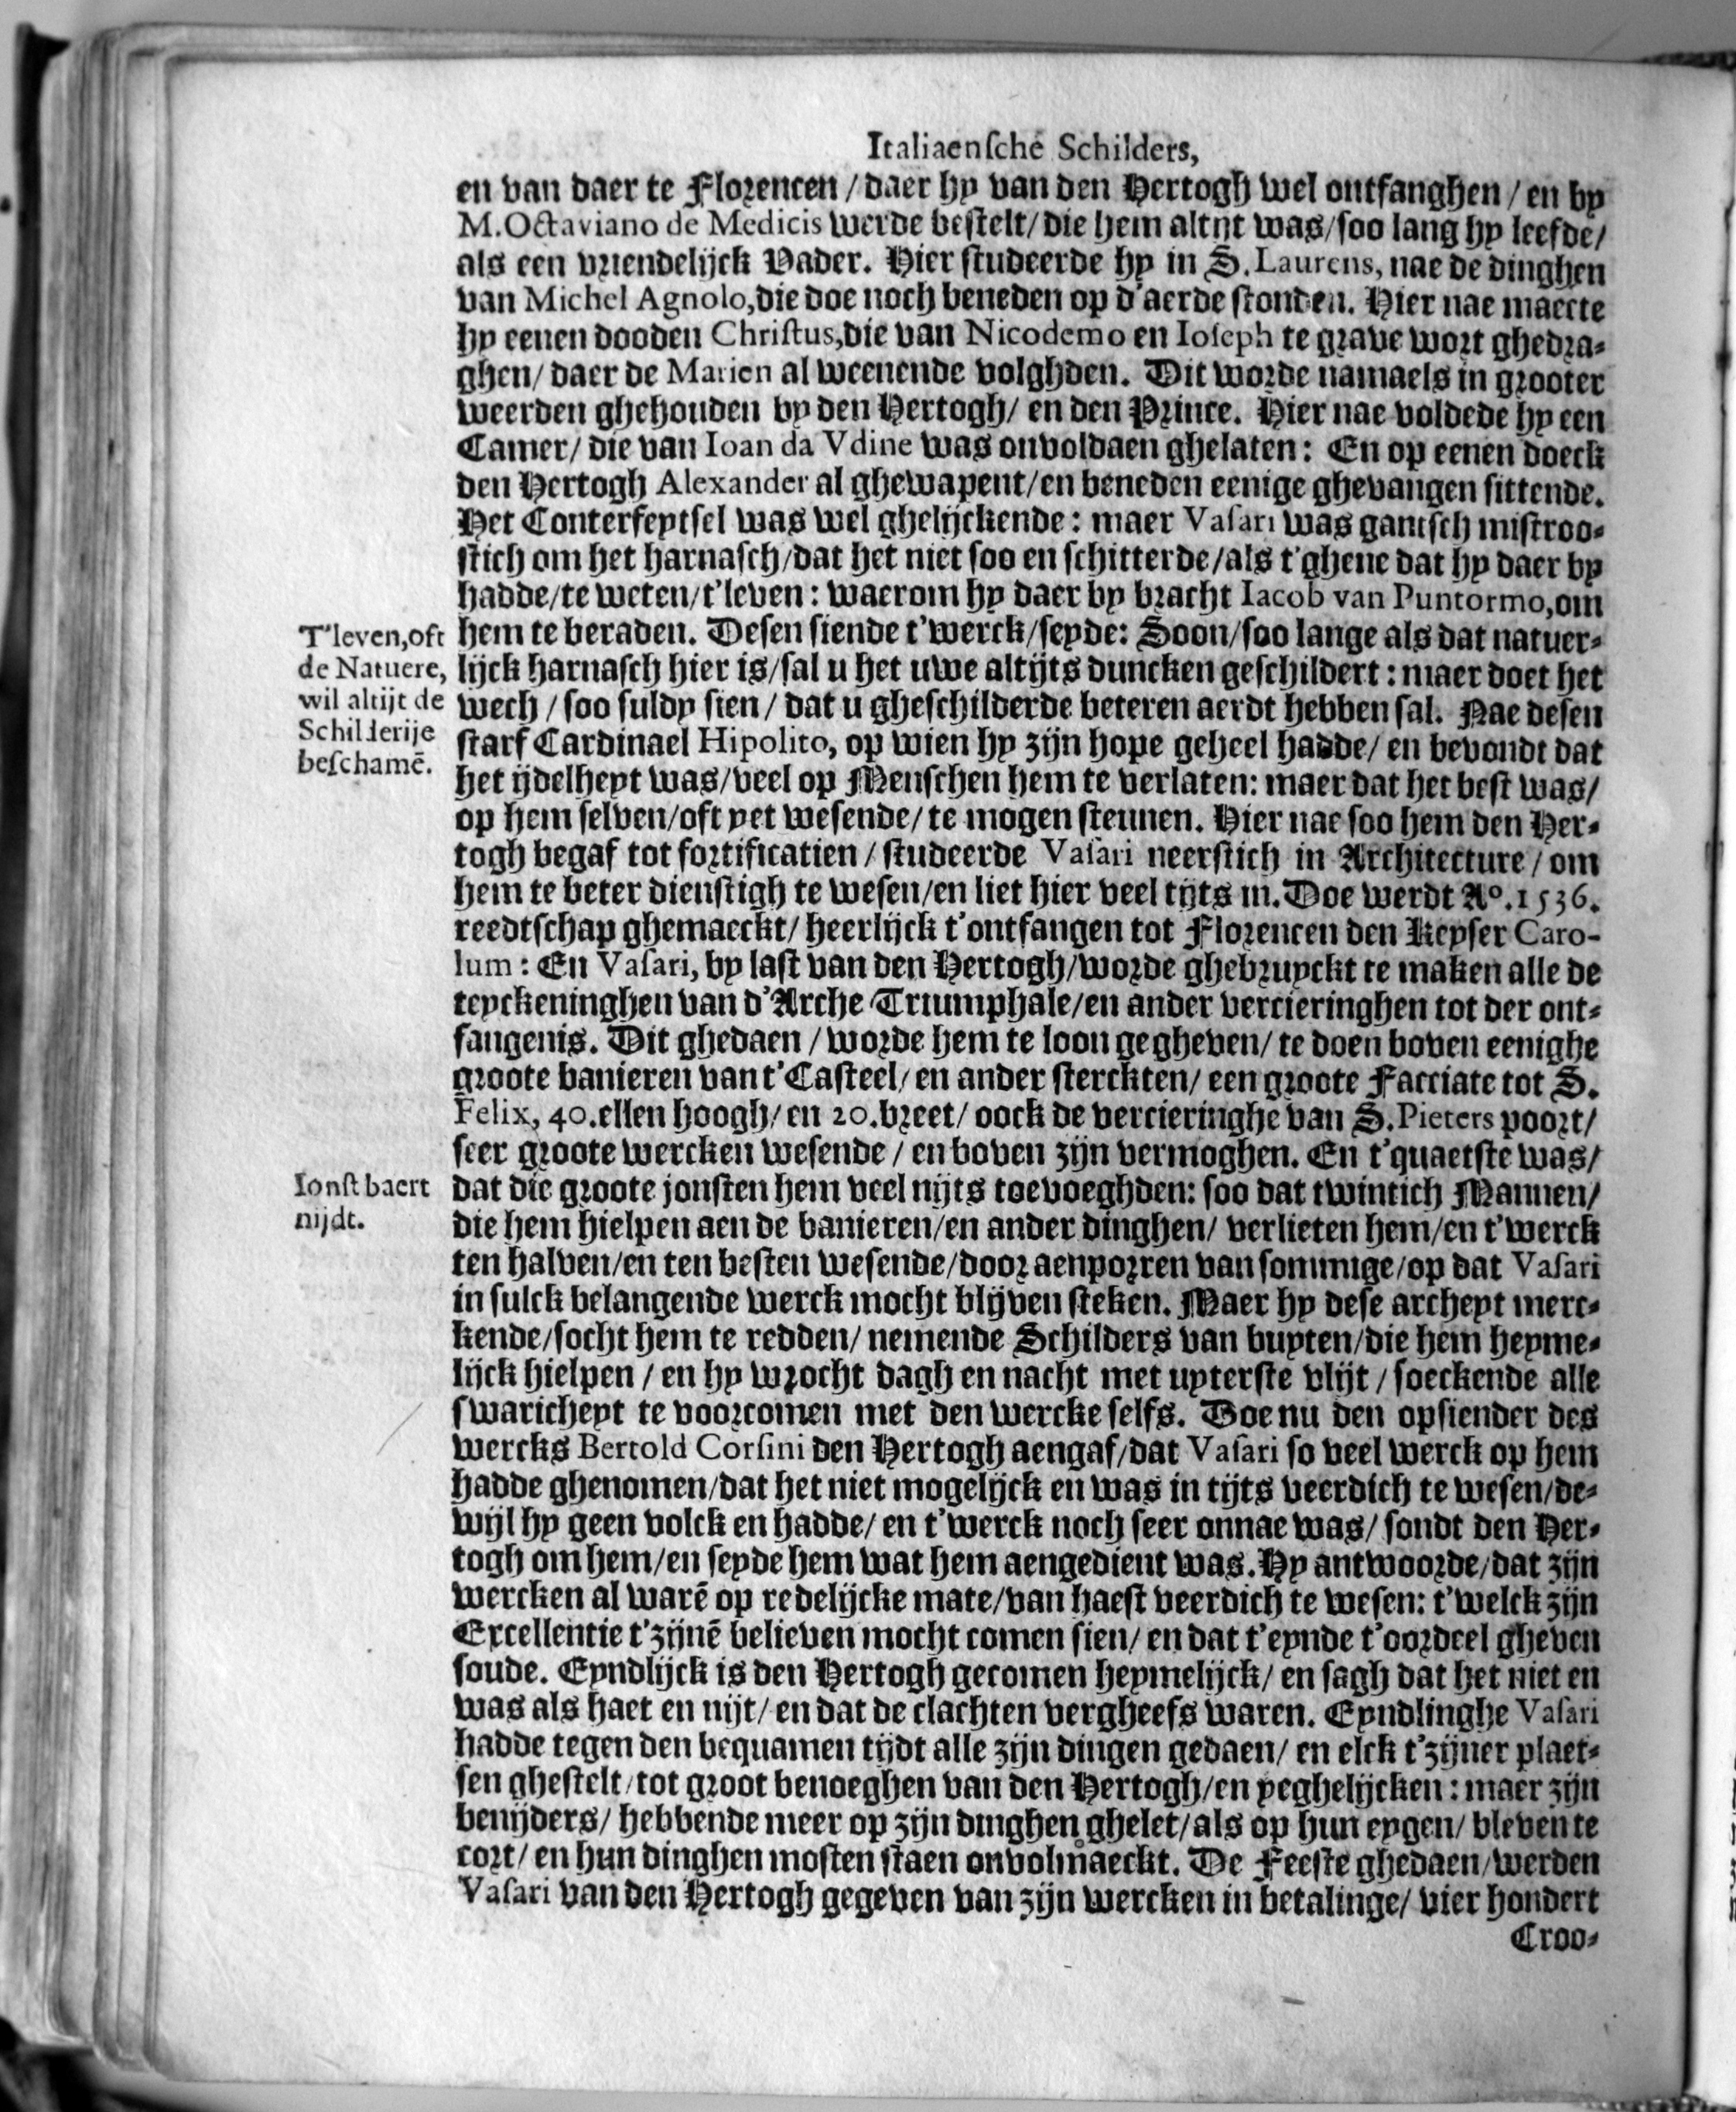 Italiaensche Schilders,
en van daer te Florencen / daer hy van den Hertogh wel ontfanghen / en by
M. Octaviano de Medicis werde bestelt / die hem altijt was / soo lang hy leefde /
als een vriendelijck Vader. Hier studeerde hy in S. Laurens, nae de dinghen
van Michel Agnolo, die doe noch beneden op d'aerde stonden. Hier nae maecte
hy eenen dooden Christus, die van Nicodemo en Ioseph te grave wort ghedra-
ghen / daer de Marien al weenende volghden. Dit worde namaels in grooter
weerden ghehouden by den Hertogh / en den Prince. Hier nae voldede hy een
Camer / die van Ioan da Vdine was onvoldaen ghelaten: En op eenen doeck
den Hertogh Alexander al ghewapent / en beneden eenige ghevangen sittende.
Het Conterfeytsel was wel ghelijckende: maer Vasari was gantsch mistroo-
stich om het harnasch / dat het niet soo en schitterde / als t'ghene dat hy daer by
hadde / te weten / t'leven: waerom hy daer by bracht Iacob van Puntormo, om
T'leven, oft
de Natuere,
wil altijt de
Schilderije
beschamē.
hem te beraden. Desen siende t'werck / seyde: Soon / soo lange als dat natuer-
lijck harnasch hier is / sal u het uwe altijts duncken geschildert: maer doet het
wech / soo suldy sien / dat u gheschilderde beteren aerdt hebben sal. Nae desen
starf Cardinael Hipolito, op wien hy zijn hope geheel hadde / en bevondt dat
het ijdelheyt was / veel op Menschen hem te verlaten: maer dat het best was /
op hem selven / oft yet wesende / te mogen steunen. Hier nae soo hem den Her-
togh begaf tot fortificatien / studeerde Vasari neerstich in Architecture / om
hem te beter dienstigh te wesen / en liet hier veel tijts in. Doe werdt Aº. 1536.
reedtschap ghemaeckt / heerlijck t'ontfangen tot Florencen den Keyser Caro-
lum: En Vasari, by last van den Hertogh / worde ghebruyckt te maken alle de
teyckeninghen van d'Arche Triumphale / en ander vercieringhen tot der ont-
fangenis. Dit ghedaen / worde hem te loon gegheven / te doen boven eenighe
groote banieren van t'Casteel / en ander sterckten / een groote Facciate tot S.
Felix, 40. ellen hoogh / en 20. breet / oock de vercieringhe van S. Pieters poort /
seer groote wercken wesende / en boven zijn vermoghen. En t'quaetste was /
Ionst baert
nijdt.
dat die groote jonsten hem veel nijts toevoeghden: soo dat twintich Mannen /
die hem hielpen aen de banieren / en ander dinghen / verlieten hem / en t'werck
ten halven / en ten besten wesende / door aenporren van sommige / op dat Vasari
in sulck belangende werck mocht blijven steken. Maer hy dese archeyt merc-
kende / socht hem te redden / nemende Schilders van buyten / die hem heyme-
lijck hielpen / en hy wrocht dagh en nacht met uyterste vlijt / soeckende alle
swaricheyt te voorcomen met den wercke selfs. Doe nu den opsiender des
wercks Bertold Corsini den Hertogh aengaf / dat Vasari so veel werck op hem
hadde ghenomen / dat het niet mogelijck en was in tijts veerdich te wesen / de-
wijl hy geen volck en hadde / en t'werck noch seer onnae was / sondt den Her-
togh om hem / en seyde hem wat hem aengedient was. Hy antwoorde / dat zijn
wercken al warē op redelijcke mate / van haest veerdich te wesen: t'welck zijn
Excellentie t'zijnē believen mocht comen sien / en dat t'eynde t'oordeel gheven
soude. Eyndlijck is den Hertogh gecomen heymelijck / en sagh dat het niet en
was als haet en nijt / en dat de clachten vergheefs waren. Eyndlinghe Vasari
hadde tegen den bequamen tijdt alle zijn dingen gedaen / en elck t'zijner plaet-
sen ghestelt / tot groot benoeghen van den Hertogh / en yeghelijcken: maer zijn
benijders / hebbende meer op zijn dinghen ghelet / als op hun eygen / bleven te
cort / en hun dinghen mosten staen onvolmaeckt. De Feeste ghedaen / werden
Vasari van den Hertogh gegeven van zijn wercken in betalinge / vier hondert
Croo-